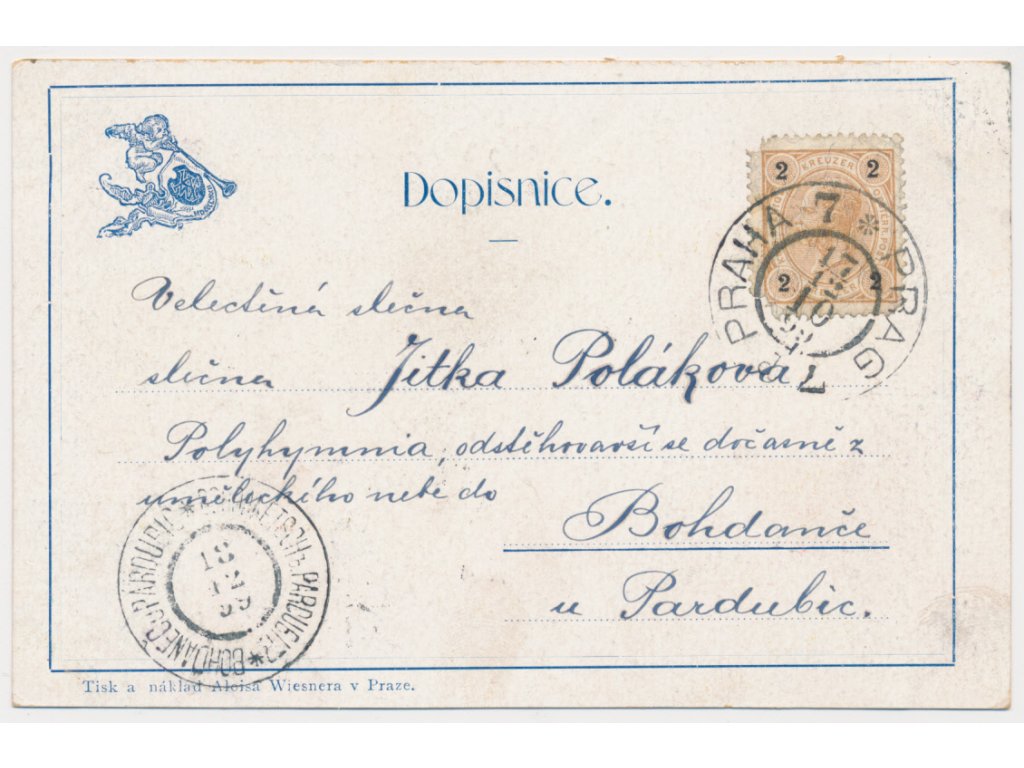 Dopisnice.
2 KREUZER 2
2 2
PRAHA 7 * PRAG 7
17
12
10
99
Velectěná slečna
slečna Jitka Poláková
Polyhymnia, odstěhovavší se dočasně z
uměleckého nebe do
Bohdanče
u Pardubic.
BOHDANEČ u PARDUBIC * PARDUBITZ *
18
12
99
Tisk a náklad Aloisa Wiesnera v Praze.